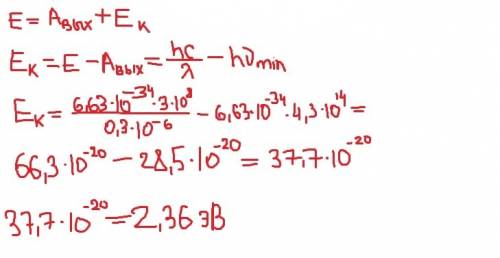 E = Aвых + Eк
Eк = E − Aвых = hc/λ − hνmin
Eк = 6,63·10⁻³⁴·3·10⁸/0,3·10⁻⁶ − 6,63·10⁻³⁴·4,3·10¹⁴ =
66,3·10⁻²⁰ − 28,5·10⁻²⁰ = 37,7·10⁻²⁰
37,7·10⁻²⁰ = 2,36 эВ